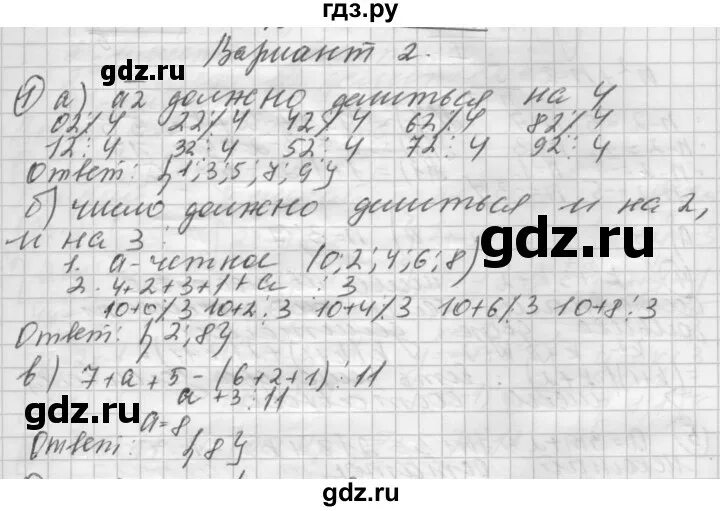 гдз.ру
Вариант 2.
gdz.ru
gdz.ru
① а) а2 должно делиться на 4
02 ⁒ 4 22 ⁒ 4 42 ⁒ 4 62 ⁒ 4 82 ⁒ 4
12 : 4 32 : 4 52 : 4 72 : 4 92 : 4
Ответ: {1; 3; 5; 7; 9}
б) число должно делиться и на 2,
и на 3:
gdz.ru
1. а-четное (0; 2; 4; 6; 8)
2. 4+2+3+1+а ⋮ 3
10+0 ⁒ 3 10+2 ⋮ 3 10+4 ⁒ 3 10+6 ⁒ 3 10+8 ⋮ 3
Ответ: {2; 8}
в) 7+а+5-(6+2+1) ⋮ 11
а+3 ⋮ 11
gdz.ru
gdz.ru
а=8
Ответ: {8}
gdz.ru